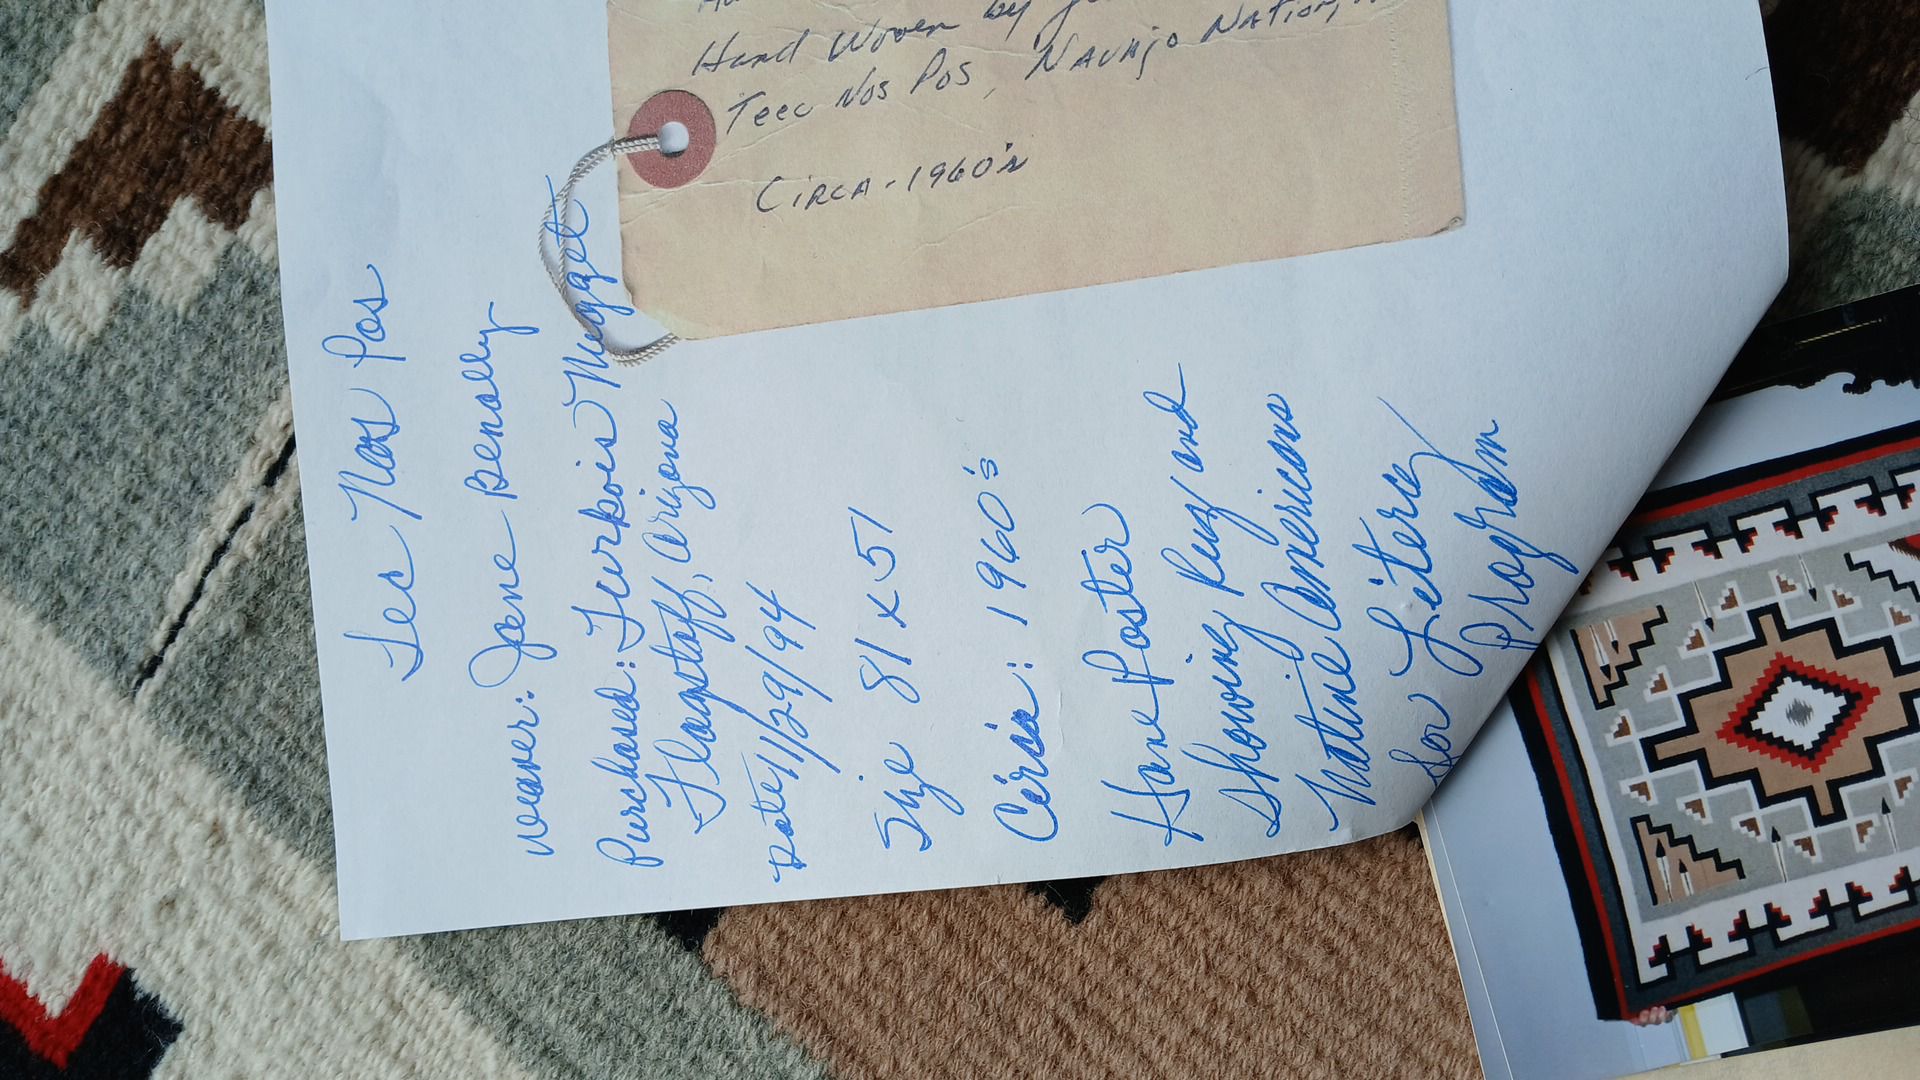 Hand Woven by
Teec Nos Pos, Navajo Nation,
CIRCA - 1960's
Tec Nos Pos
Weaver: Jane Benally
Purchased: Turkois Nugget
Flagstaff, Arizona
Date 11/29/94
Size 81 x 51
Cércia: 1960's
Have Poster
Showing Rug and
Native Americans
for Litercy
Program